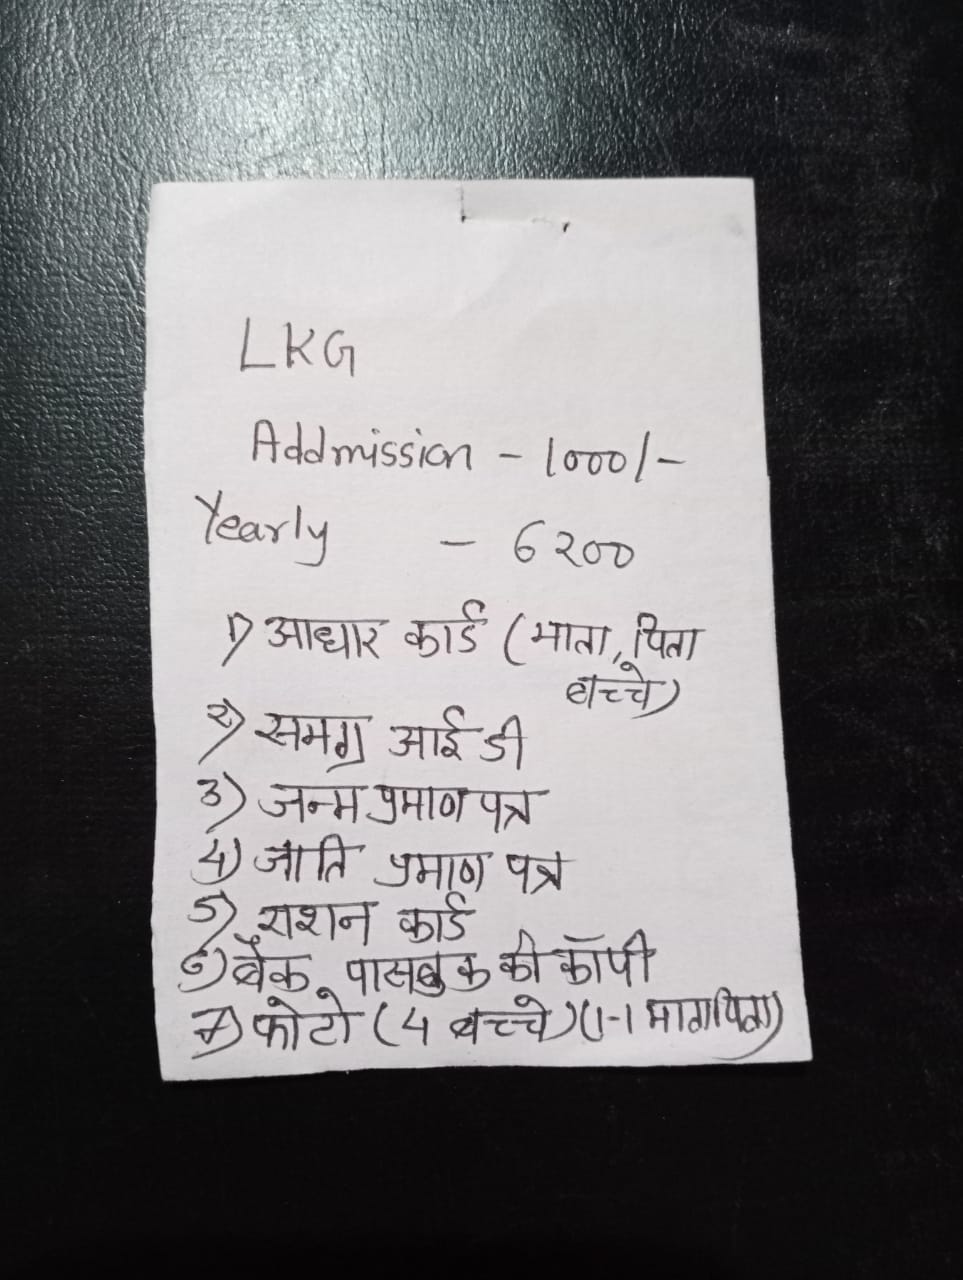 LKG
Addmission - 1000/-
Yearly - 6200
1) आधार कार्ड (माता, पिता
बच्चे)
2) समग्र आई डी
3) जन्म प्रमाण पत्र
4) जाति प्रमाण पत्र
5) राशन कार्ड
6) बैंक पासबुक की कॉपी
7) फोटो (4 बच्चे) (1-1 माता पिता)